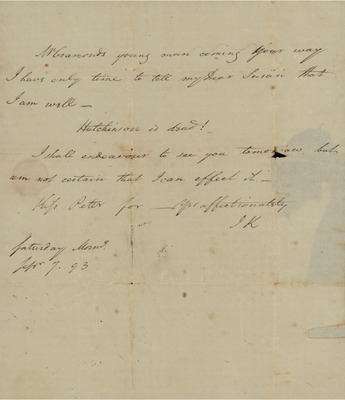 young man coming your way
I have only time to tell my Dear Susan that
I am well —
Hutchinson is dead!
I shall endeavour to see you tomorrow but
am not certain that I can effect it. —
Kiss Peter for — Yrs affectionately
J K
Saturday Morng.
Sepr 7. 93